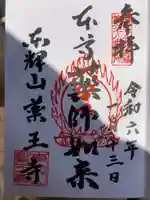 奉拝
令和六年
十一月十三日
本尊薬師如来
東輝山薬王寺